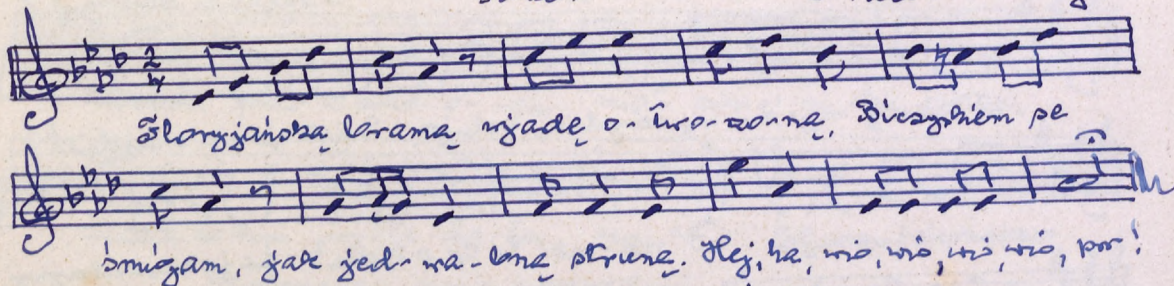 Floryjańską bramą wjadę o-two-zo-ną, Biczyskiem se
śmigam, jak jed-wa-bną struną. Hej, ha, wio, wio, wio, wio, prr!